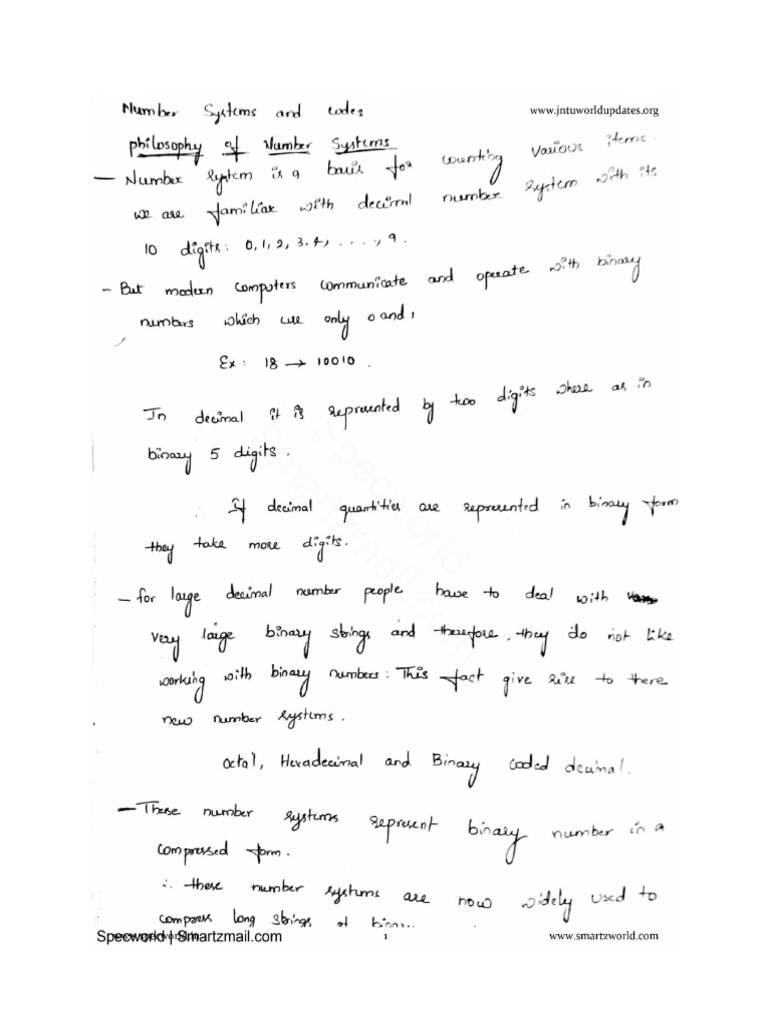 Number Systems and codes
www.jntuworldupdates.org
philosophy of Number Systems
— Number System is a basis for counting various items.
we are familiar with decimal number system with its
10 digits: 0, 1, 2, 3, 4, . . . ., 9.
- But modern computers communicate and operate with binary
numbers which use only 0 and 1
Ex: 18 → 10010.
In decimal it is represented by two digits where as in
binary 5 digits.
∴ If decimal quantities are represented in binary form
they take more digits.
— for large decimal number people have to deal with
very large binary strings and therefore, they do not like
working with binary numbers: This fact give rise to there
new number systems.
octal, Hexadecimal and Binary coded decimal.
— These number systems represent binary number in a
compressed form.
∴ these number systems are now widely used to
compress long strings of
Specworld | Smartzmail.com
1
www.smartzworld.com
Specworld
Smartzmail.com